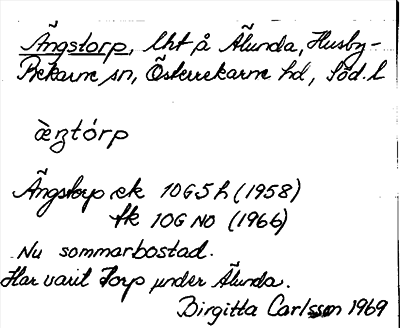 Ängstorp, lht på Älunda, Husby-
Rekarne sn, Österrekarne hd, Söd. l
ä̀ŋstórp
Ängstorp ek 10G5h (1958)
tk 10G NO (1966)
Nu sommarbostad.
Har varit torp under Älunda.
Birgitta Carlsson 1969